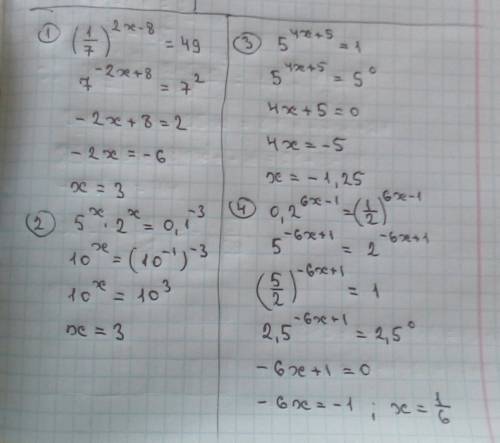 ① (1/7)^(2x-8) = 49
7^(-2x+8) = 7^2
-2x+8=2
-2x=-6
x=3
② 5^x · 2^x = 0,1^(-3)
10^x = (10^(-1))^(-3)
10^x = 10^3
x=3
③ 5^(4x+5) = 1
5^(4x+5) = 5^0
4x+5=0
4x=-5
x=-1,25
④ 0,2^(6x-1) = (1/2)^(6x-1)
5^(-6x+1) = 2^(-6x+1)
(5/2)^(-6x+1) = 1
2,5^(-6x+1) = 2,5^0
-6x+1=0
-6x=-1 ; x=1/6